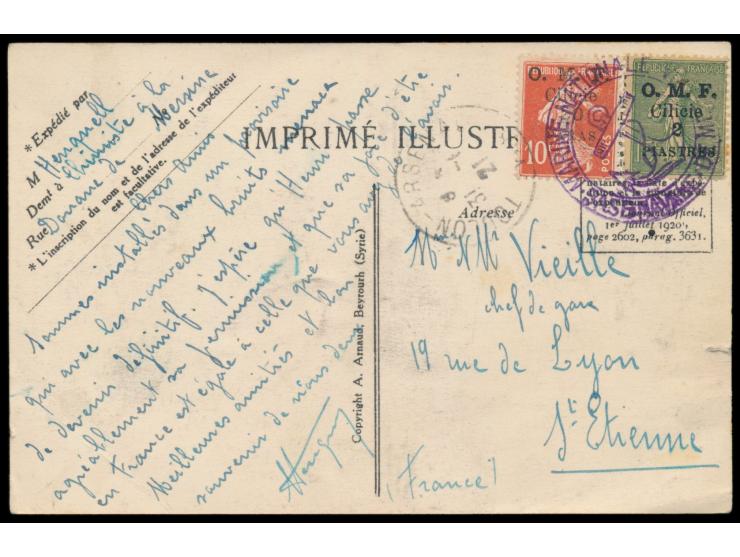 * Expédié par
M Henguell
Demt à Chimiste à la
Rue Douane de Mersine
* L'inscription du nom et de l'adresse de l'expéditeur
est facultative.
IMPRIMÉ ILLUSTR
Chers amis
Sommes installés dans un provisoire
qui avec les nouveaux bruits menace
de devenir définitif. J'espère qu'Henri passe
agréablement sa permission et que sa joie d'être
en France est égale à celle que vous avez de l'avoir.
Meilleures amitiés et bon
souvenir de nous deux
Copyright A. Arnaud, Beyrouth (Syrie)
RÉPUBLIQUE FRANÇAISE
O. M. F.
Cilicie
10
POSTES
RÉPUBLIQUE FRANÇAISE
O. M. F.
Cilicie
2
PIASTRES
TOULON
Journal Officiel,
1er juillet 1920,
page 2602, parag. 3631.
Adresse
Mr & Mme Vieille
chef de gare
19 rue de Lyon
St Etienne
(France)